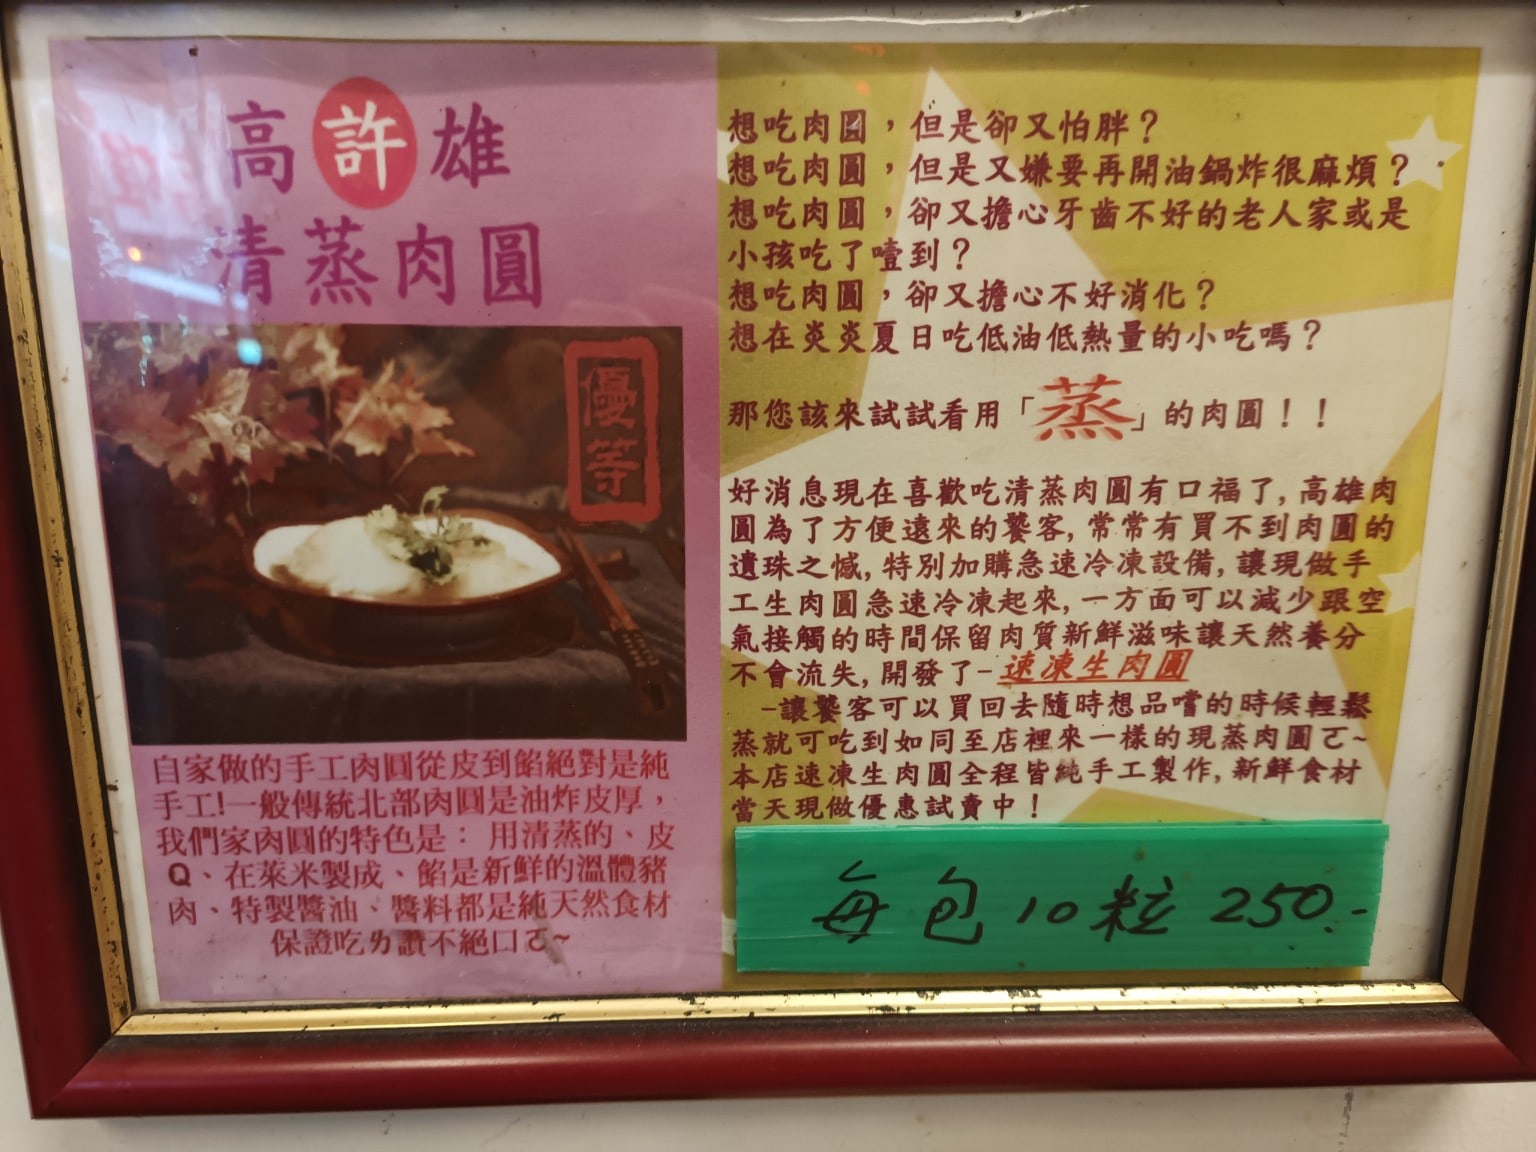 高許雄
清蒸肉圓
優等
自家做的手工肉圓從皮到餡絕對是純
手工!一般傳統北部肉圓是油炸皮厚，
我們家肉圓的特色是： 用清蒸的、皮
Q、在萊米製成、餡是新鮮的溫體豬
肉、特製醬油、醬料都是純天然食材
保證吃ㄌ讚不絕口ㄛ~
想吃肉圓，但是卻又怕胖？
想吃肉圓，但是又嫌要再開油鍋炸很麻煩？
想吃肉圓，卻又擔心牙齒不好的老人家或是
小孩吃了噎到？
想吃肉圓，卻又擔心不好消化？
想在炎炎夏日吃低油低熱量的小吃嗎？
那您該來試試看用「蒸」的肉圓！！
好消息現在喜歡吃清蒸肉圓有口福了,高雄肉
圓為了方便遠來的饕客,常常有買不到肉圓的
遺珠之憾,特別加購急速冷凍設備,讓現做手
工生肉圓急速冷凍起來,一方面可以減少跟空
氣接觸的時間保留肉質新鮮滋味讓天然養分
不會流失,開發了-速凍生肉圓
-讓饕客可以買回去隨時想品嚐的時候輕鬆
蒸就可吃到如同至店裡來一樣的現蒸肉圓ㄛ~
本店速凍生肉圓全程皆純手工製作,新鮮食材
當天現做優惠試賣中！
每包10粒 250.-